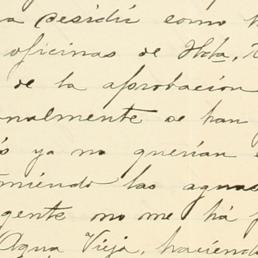 a residir como
oficinas de Hola,
de la aprobación
nalmente se han
s ya no querian
miendo las aguas
gente no me há
Agua Vieja, haciendo